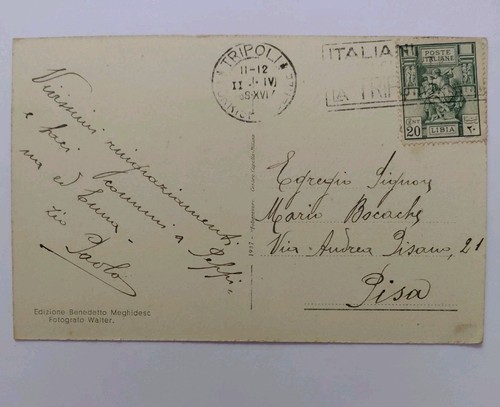 TRIPOLI
11-12
11 · IV
38·XVI
ITALIANI
POSTE
ITALIANE
CENT
20
LIBIA
Vivissimi ringraziamenti
e baci comuni a Peppi-
na ed Emma-
zio Paolo
Egregio Signor
Mario Bocache
Via Andrea Pisano, 21
Pisa
Edizione Benedetto Meghidesc
Fotografo Walter.